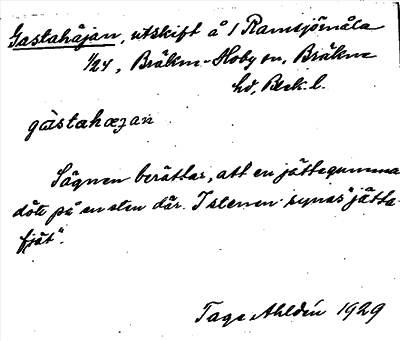 Gastahåjan, utskift å 1 Ramsjömåla
1/24, Bräkne-Hoby sn, Bräkne
hd, Blek. l.
gàstahæʒan
Sägnen berättar, att en jättegumma
döte på en sten där. I stenen synas "jätta-
fjät".
Tage Ahldén 1929